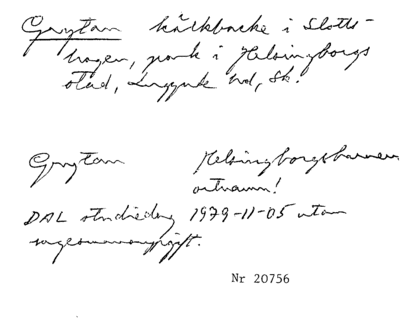 Grytan kälkbacke i Slotts-
hagen, park i Helsingborgs
stad, Luggude hd, Sk.
Grytan Helsingborgsbarnens
ortnamn!
DAL studiedag 1979-11-05 utan
sagesmannauppgift.
Nr 20756